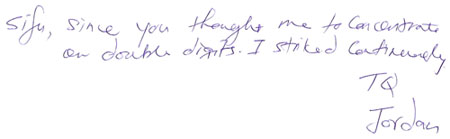 Sifu, since you thought me to Concentrate
on double digits. I striked Continuously
TQ
Jordan